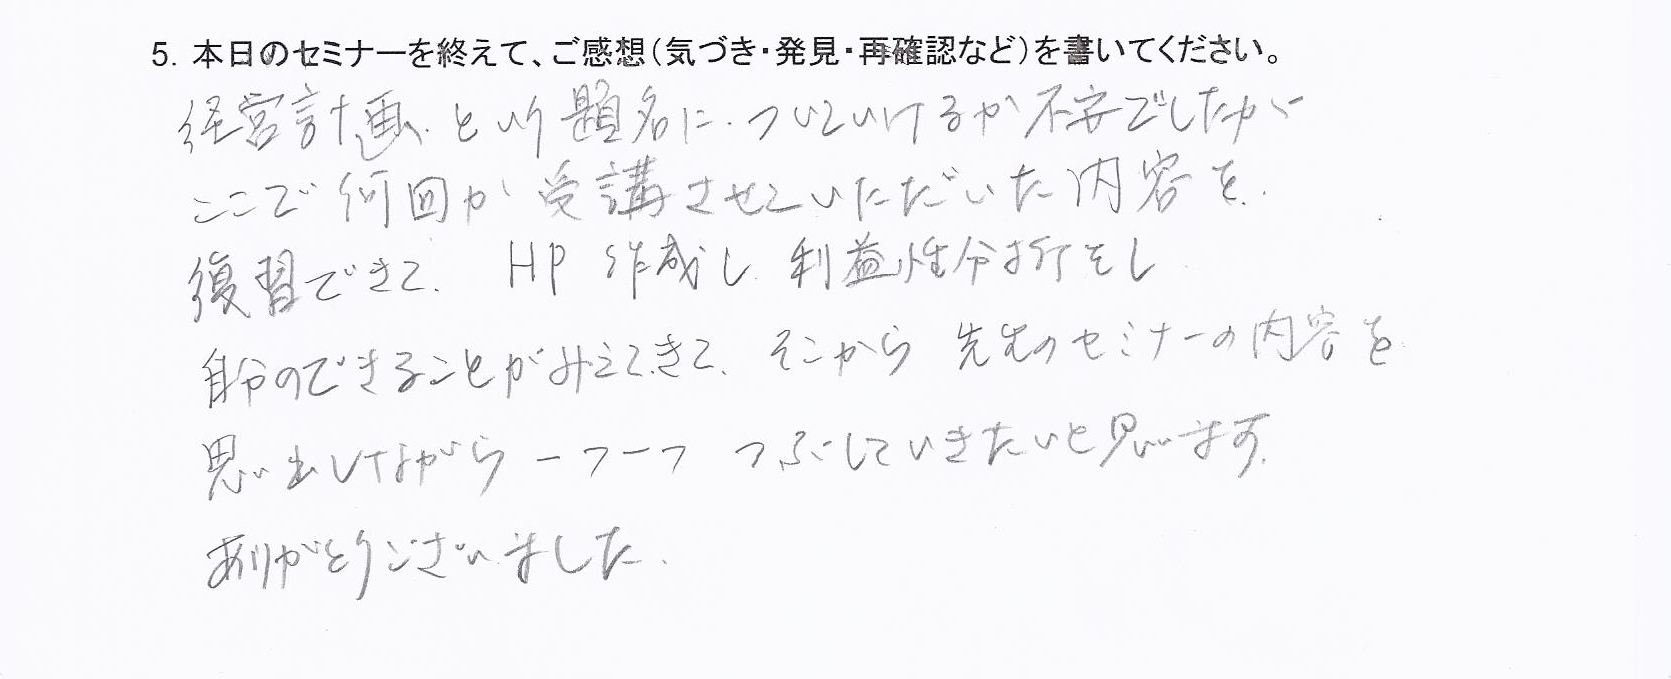 5. 本日のセミナーを終えて、ご感想(気づき・発見・再確認など)を書いてください。
経営計画という題名に、ついていけるか不安でしたが
ここで何回か受講させていただいた内容を、
復習できて、HP作成し、利益性分析をし
自分のできることがみえてきて、そこから先生のセミナーの内容を
思い出しながら一つ一つつぶしていきたいと思います。
ありがとうございました。